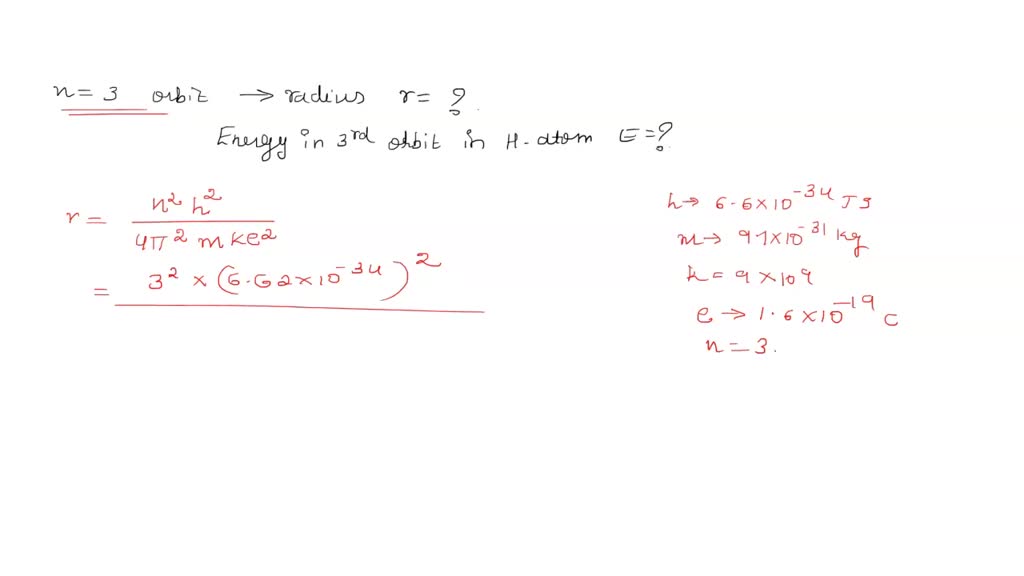 n = 3 orbit → radius r = ?
Energy in 3rd orbit in H-atom E = ?
r = n² h² / 4π² m k e²
= 3² × (6.62×10⁻³⁴)²
h → 6.6×10⁻³⁴ Js
m → 9.1×10⁻³¹ kg
k = 9 × 109
e → 1.6×10⁻¹⁹ C
n = 3.